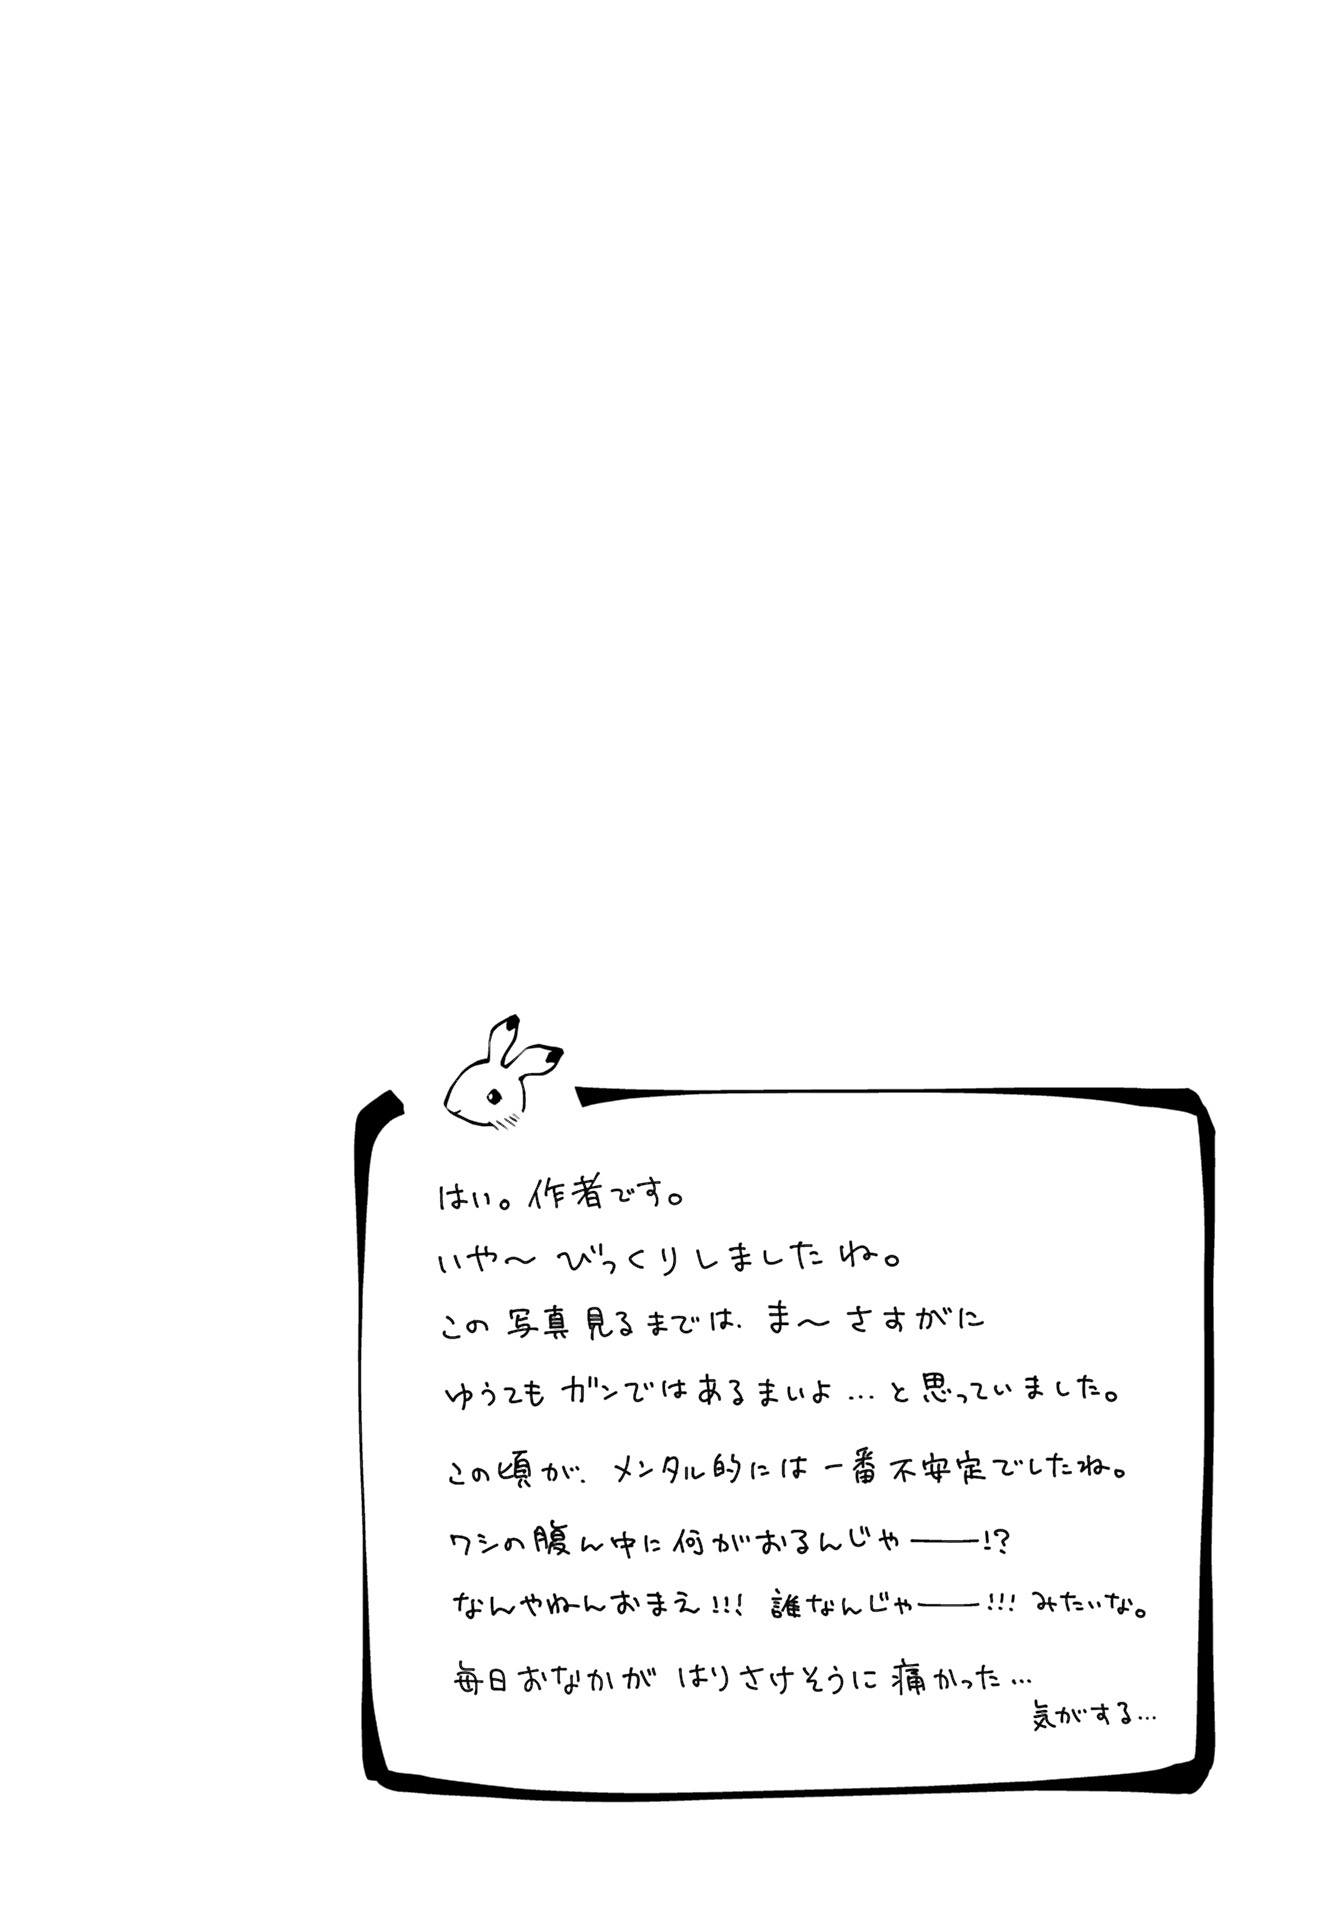 はい。作者です。
いや〜 びっくりしましたね。
この写真見るまでは、ま〜さすがに
ゆうてもガンではあるまいよ…と思っていました。
この頃が、メンタル的には一番不安定でしたね。
ワシの腹ん中に何がおるんじゃ――!?
なんやねんおまえ!!! 誰なんじゃ――!!! みたいな。
毎日おなかがはりさけそうに痛かった…
気がする…